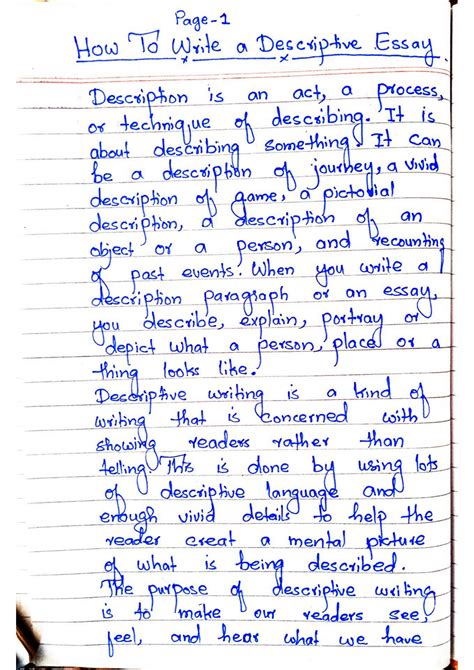 Page-1
How To Write a Descriptive Essay.
Description is an act, a process,
or technique of describing. It is
about describing something. It can
be a description of journey, a vivid
description of game, a pictorial
description, a description of an
object or a person, and recounting
of past events. When you write a
description paragraph or an essay,
you describe, explain, portray or
depict what a person, place or a
thing looks like.
Descriptive writing is a kind of
writing that is concerned with
showing readers rather than
telling. This is done by using lots
of descriptive language and
enough vivid details to help the
reader creat a mental picture
of what is being described.
The purpose of descriptive writing
is to make our readers see,
feel, and hear what we have